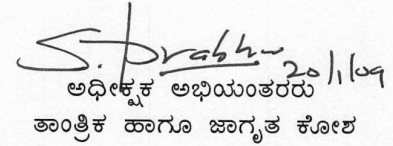 S. Prabhu
20/1/09
ಅಧೀಕ್ಷಕ ಅಭಿಯಂತರರು
ತಾಂತ್ರಿಕ ಹಾಗೂ ಜಾಗೃತ ಕೋಶ